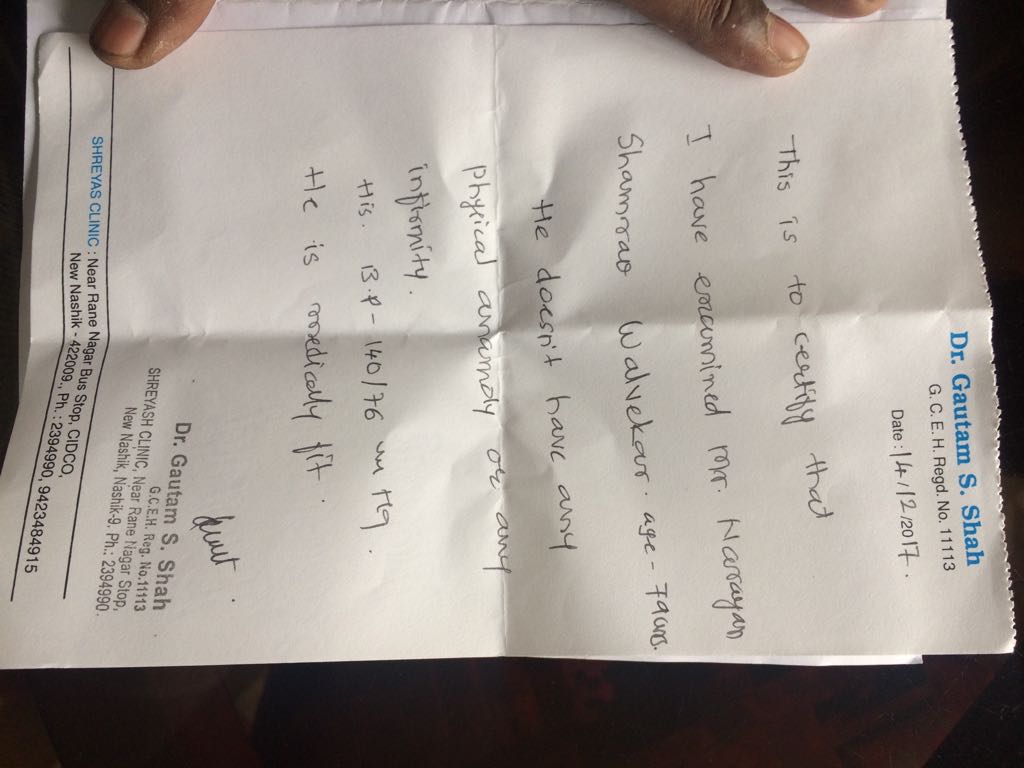 Dr. Gautam S. Shah
G. C. E. H. Regd. No. 11113
Date: 14/12/2017.
This is to certify that
I have examined mr. Narayan
Shamrao Walvekar. age - 79yrs.
He doesn't have any
physical anamoly or any
infirmity.
His. B.P - 140/76 mm Hg.
He is medically fit.
Dr. Gautam S. Shah
G.C.E.H. Reg. No.11113
SHREYASH CLINIC, Near Rane Nagar Stop,
New Nashik, Nashik-9. Ph.: 2394990.
SHREYAS CLINIC : Near Rane Nagar Bus Stop, CIDCO,
New Nashik - 422009., Ph. : 2394990, 9423484915